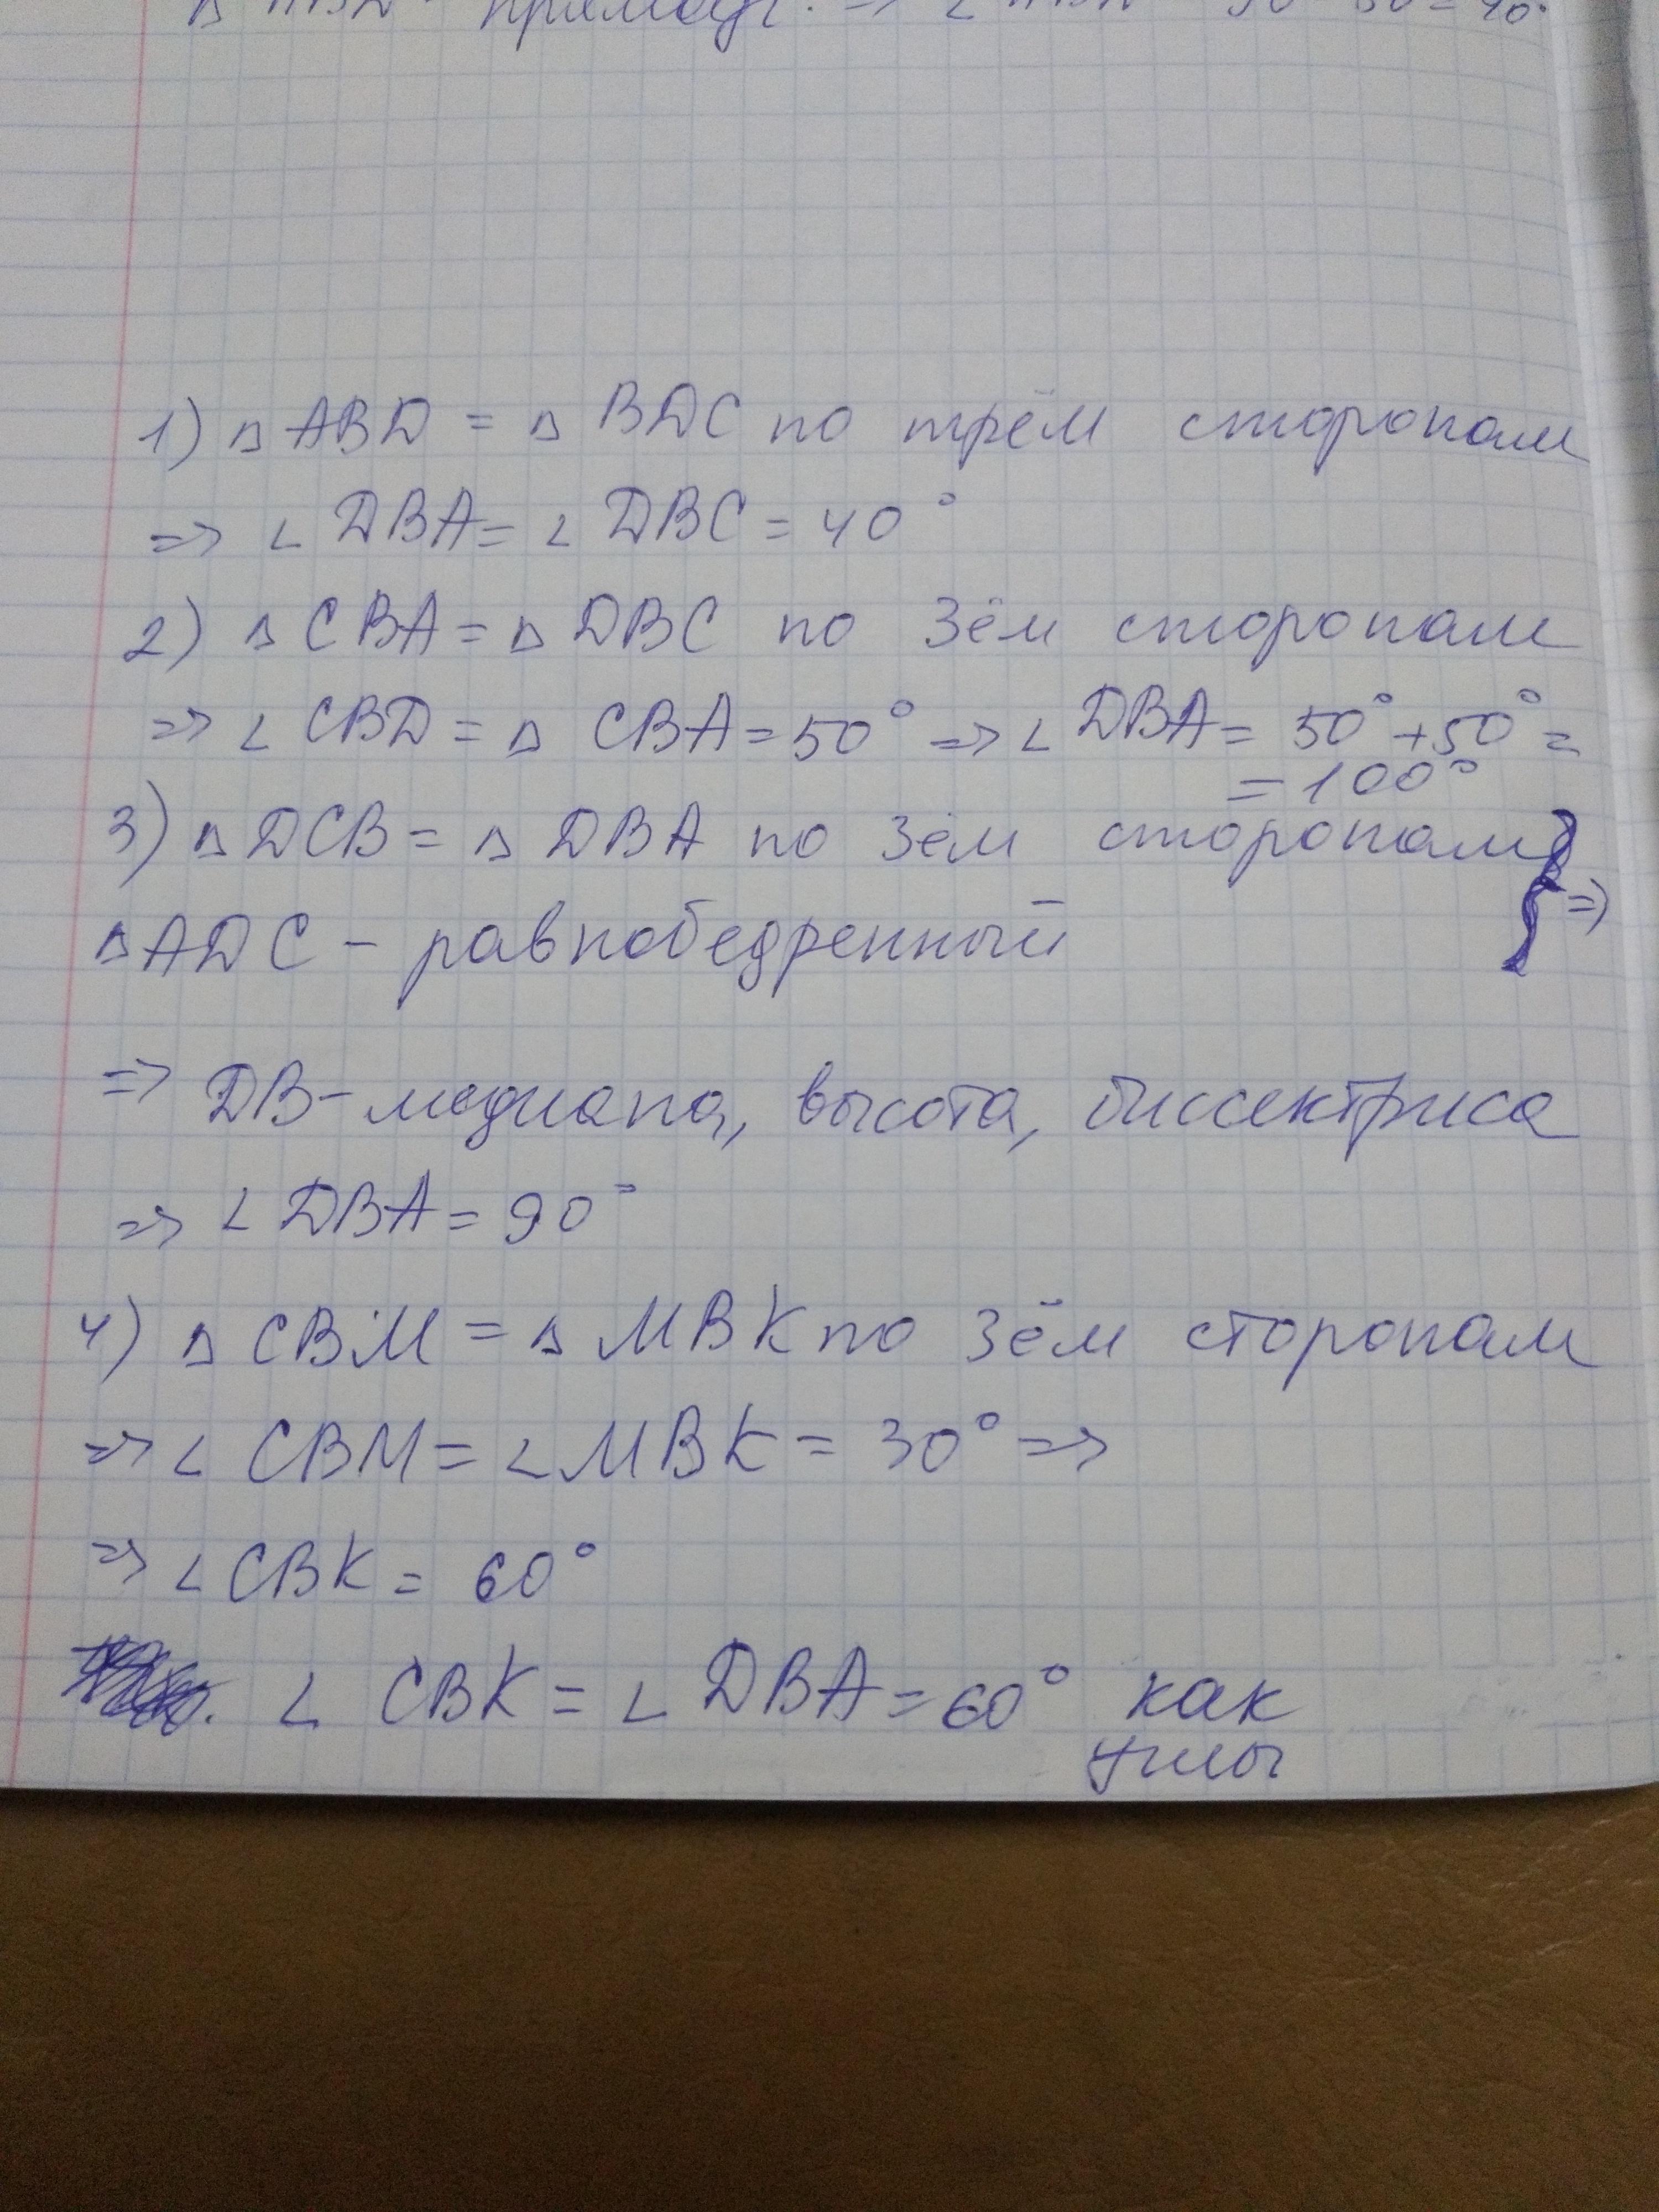 1) △ ABD = △ BDC по трём сторонам
=> ∠ DBA = ∠ DBC = 40°
2) △ CBA = △ DBC по 3ём сторонам
=> ∠ CBD = △ CBA = 50° => ∠ DBA = 50° + 50° =
= 100°
3) △ DCB = △ DBA по 3ём сторонам
△ ADC - равнобедренный } =>
=> DB - медиана, высота, биссектриса
=> ∠ DBA = 90°
4) △ CBM = △ MBK по 3ём сторонам
=> ∠ CBM = ∠ MBK = 30° =>
=> ∠ CBK = 60°
∠ CBK = ∠ DBA = 60° как
углы